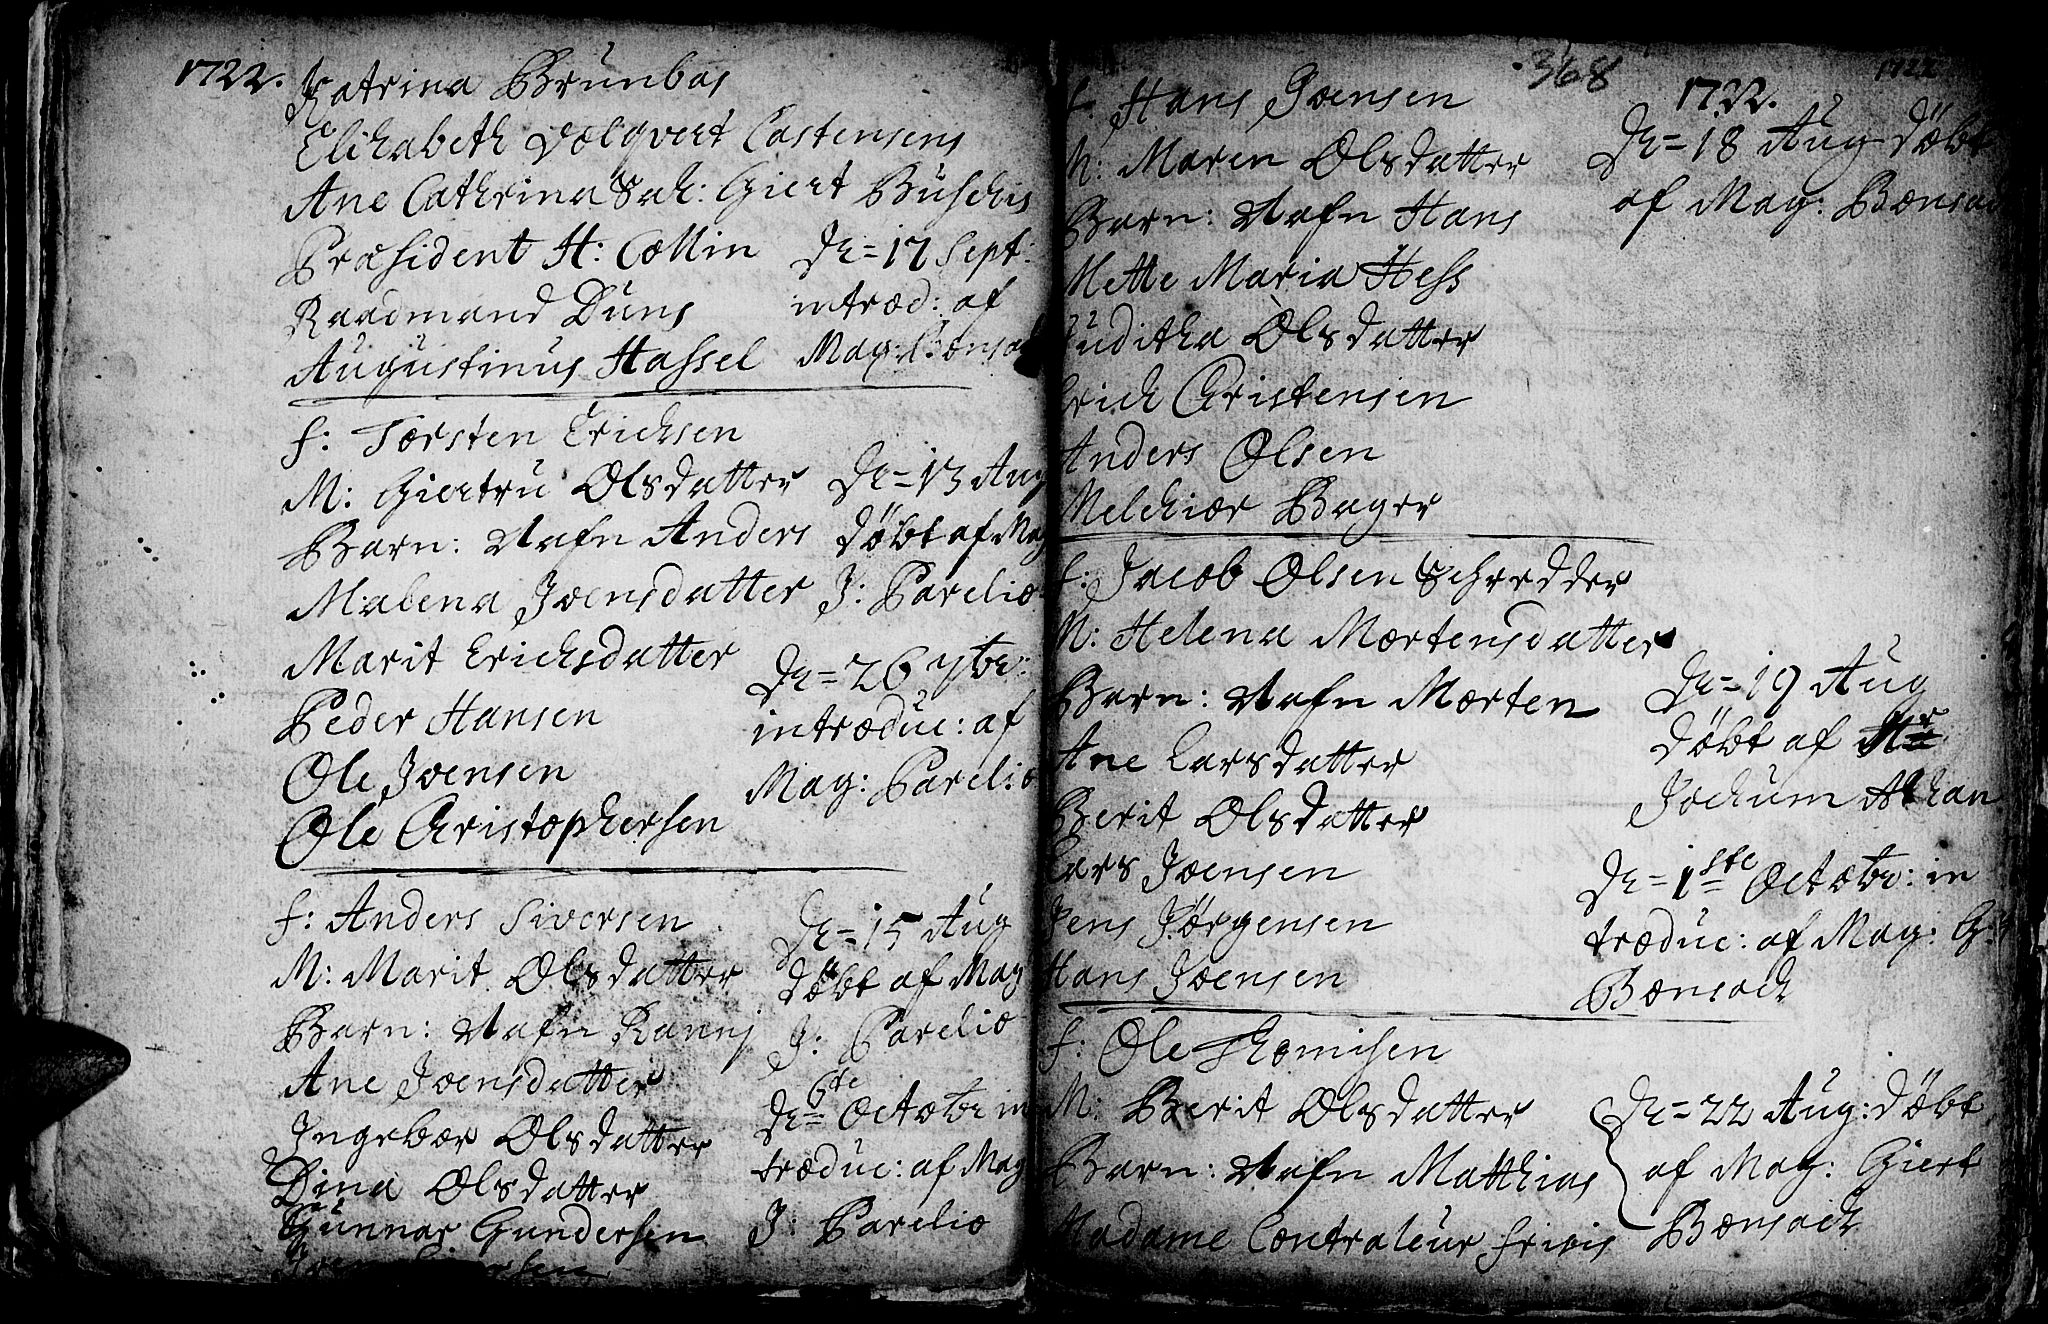 1722.
Katrina Brünbas
Elizhabeth Volqvert Castensens
Ane Cathrina Sal: Giert Büschis
Præsident H: Collin
Raadmand Düns
Augustinus Hassel
De = 17 Sept:
introd: af
Mag: Bonsa
f: Torsten Erichsen
M: Giertru Olsdatter
Barn: Nafn Anders
Malena Joensdatter
Marit Erichsdatter
Peder Hansen
Ole Joensen
Ole Christophersen
De = 13 Aug
döbt af Mag
J: Parelio
De = 26 7br:
introduc: af
Mag: Parelio
f: Anders Siversen
M: Marit Olsdatter
Barn: Nafn Ranej
Ane Joensdatter
Ingebor Olsdatter
Dina Olsdatter
Gunnar Gundersen
De = 15 Aug
döbt af Mag
J: Parelio
De 6te Octobr in
troduc: af Mag
J: Parelio
368
1722.
1722
f. Hans Joensen
M: Maren Olsdatter
Barn: Nafn Hans
Mette Maria Hess
Juditha Olsdatter
Erich Christensen
Anders Olsen
Melchior Bager
De = 18 Aug döbt
af Mag: Bonsach
f: Jacob Olsen Schredder
M: Helena Mortensdatter
Barn: Nafn Morten
Ane Larsdatter
Berit Olsdatter
Lars Joensen
Jens Jörgensen
Hans Joensen
De = 19 Aug
döbt af Hr
Jochum
De = 1ste Octobr: in
troduc: af Mag: G:
Bonsach
f: Ole Thomisen
M: Berit Olsdatter
Barn: Nafn Matthias
Madame Contraleur Friis
De = 22 Aug: döbt
af Mag: Giert
Bonsach